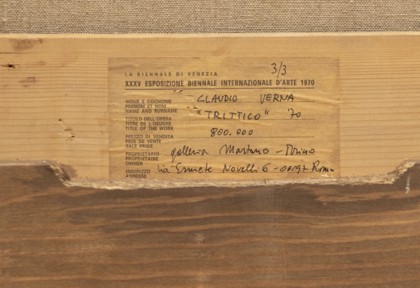 3/3
LA BIENNALE DI VENEZIA
XXXV ESPOSIZIONE BIENNALE INTERNAZIONALE D'ARTE 1970
NOME E COGNOME
PRENOM ET NOM
NAME AND SURNAME
CLAUDIO VERNA
TITOLO DELL'OPERA
TITRE DE L'OEUVRE
TITLE OF THE WORK
"TRITTICO" 70
PREZZO DI VENDITA
PRIX DE VENTE
SALE PRICE
800.000
PROPRIETARIO
PROPRIETAIRE
OWNER
galleria Martano - Torino
INDIRIZZO
ADRESSE
Via Ermete Novelli 6 - 00197 Roma